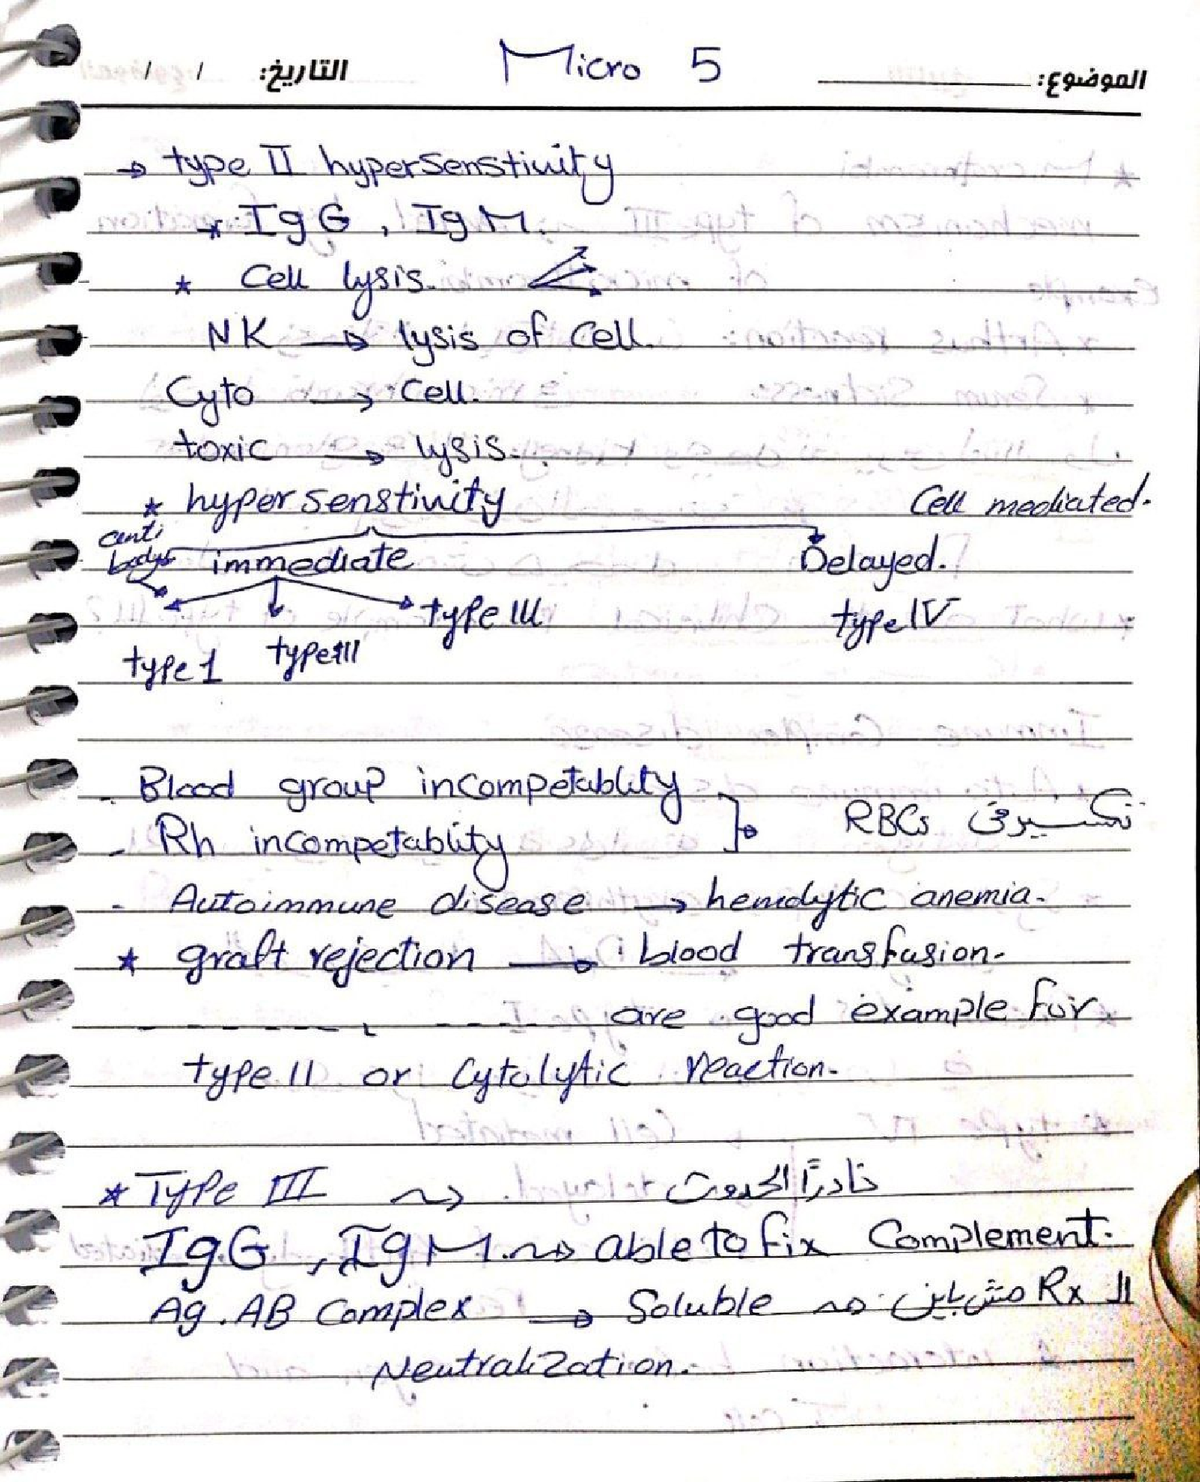 الموضوع: Micro 5 التاريخ: / /
→ type II hypersenstivity
* IgG , IgM.
* Cell lysis.
NK → lysis of Cell.
Cyto → Cell.
toxic → lysis.
* hypersenstivity Cell mediated.
anti bodys immediate Delayed.
type 1 type III type III type IV
- Blood group incompetablity
- Rh incompetablity } → RBCs تكسير في
- Autoimmune disease → hemolytic anemia.
* graft rejection → blood transfusion.
are good example for
type II or Cytolytic reaction.
* Type III → نادرًا الحدوث
IgG , IgM. → able to fix Complement.
Ag . AB Complex → Soluble → الـ Rx مش باين
Neutralization.